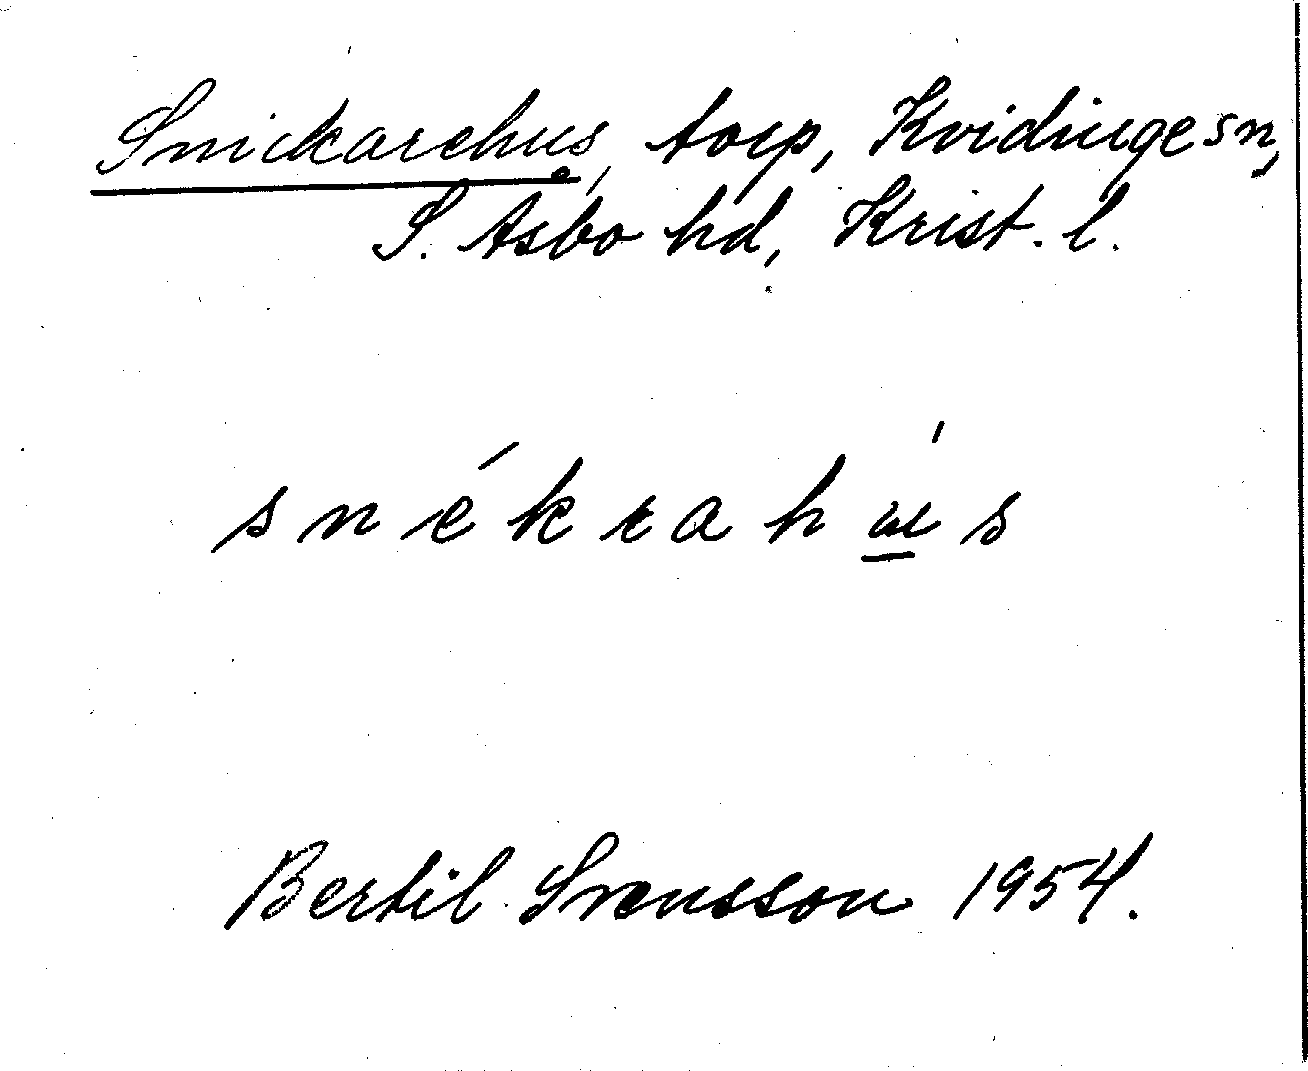 Snickarehus, torp, Kvidinge sn,
S. Åsbo hd, Krist. l.
snékrahu̲̍s
Bertil Svensson 1954.